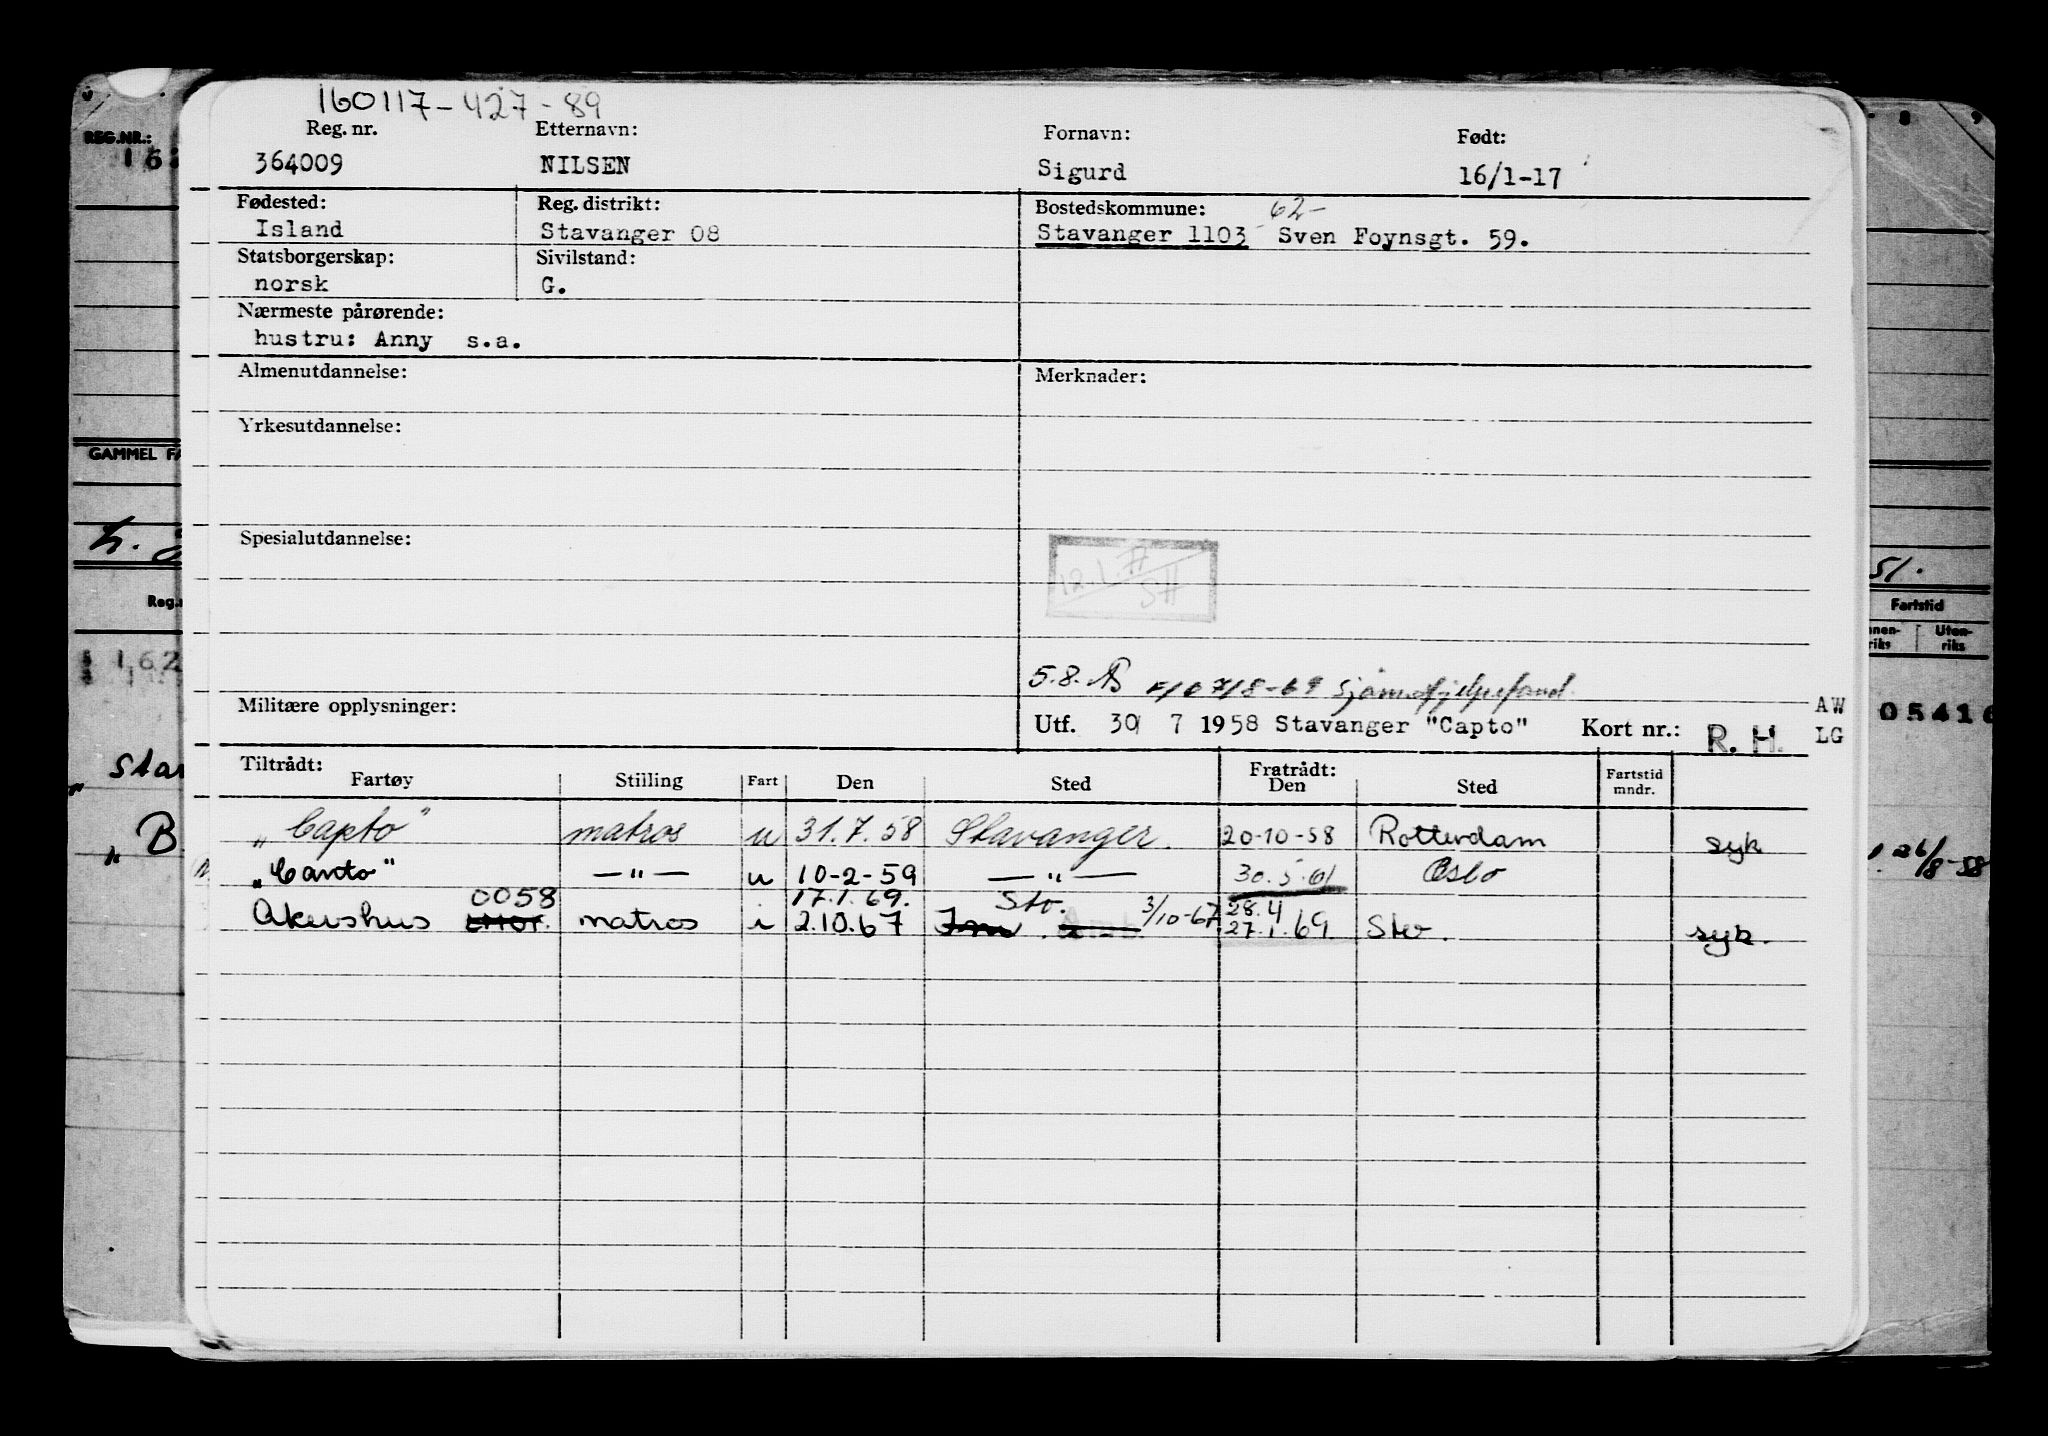 160117-427-89
Reg. nr. Etternavn: Fornavn: Født:
364009 NILSEN Sigurd 16/1-17
Fødested: Reg. distrikt: Bostedskommune: 62-
Island Stavanger 08 Stavanger 1103 Sven Foynsgt. 59.
Statsborgerskap: Sivilstand:
norsk G.
Nærmeste pårørende:
hustru: Anny s.a.
Almenutdannelse: Merknader:
Yrkesutdannelse:
Spesialutdannelse:
5.8. 7/8-69
Militære opplysninger: Utf. 30 7 1958 Stavanger "Capto" Kort nr.: R. H.
AW
LG
Tiltrådt: Fratrådt:
Fartøy Stilling Fart Den Sted Den Sted Fartstid mndr.
"Capto" matros u 31.7.58 Stavanger. 20-10-58 Rotterdam syk
"Canto" —"— u 10-2-59 —"— 30.5.61 Oslo
0058 17.1.69. Stv. 3/10-67 28.4
Akershus matros i 2.10.67 27.1.69. Stv. syk.
REG.NR.:
GAMMEL
51.
Fartstid
Uten-
riks
05416
B.
26/8-58